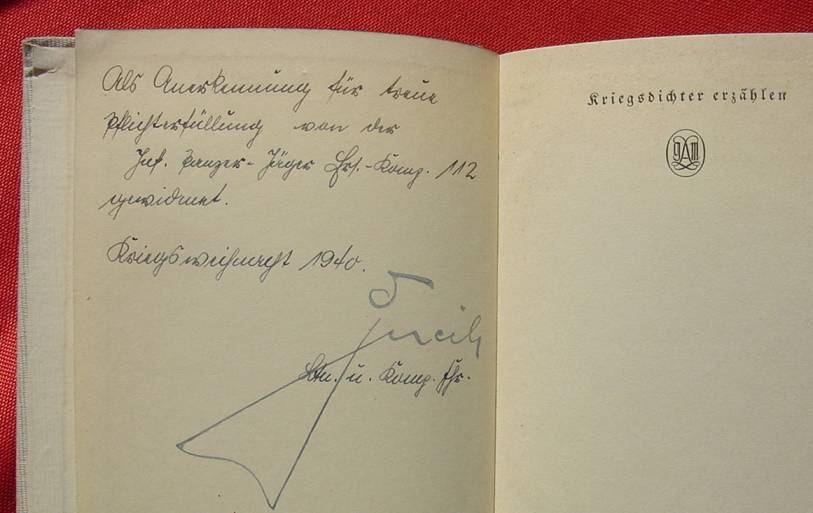 Als Anerkennung für treue
Pflichterfüllung von der
Inf. Panzer-Jäger Ers.-Komp. 112
gewidmet.
Kriegsweihnacht 1940.
Ltn. u. Komp. Fhr.
Kriegsdichter erzählen
gAm